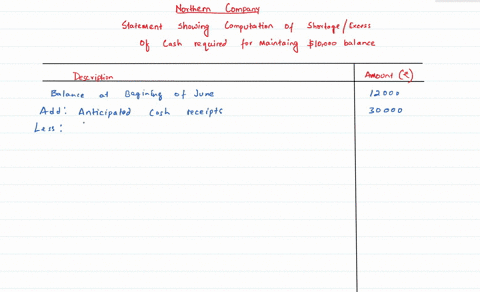 Northern Company
Statement showing Computation of Shortage/Excess
Of Cash required for Maintaing $10,000 balance
Description Amount (₹)
Balance at Beginning of June 12000
Add: Anticipated Cash receipts 30000
Less: